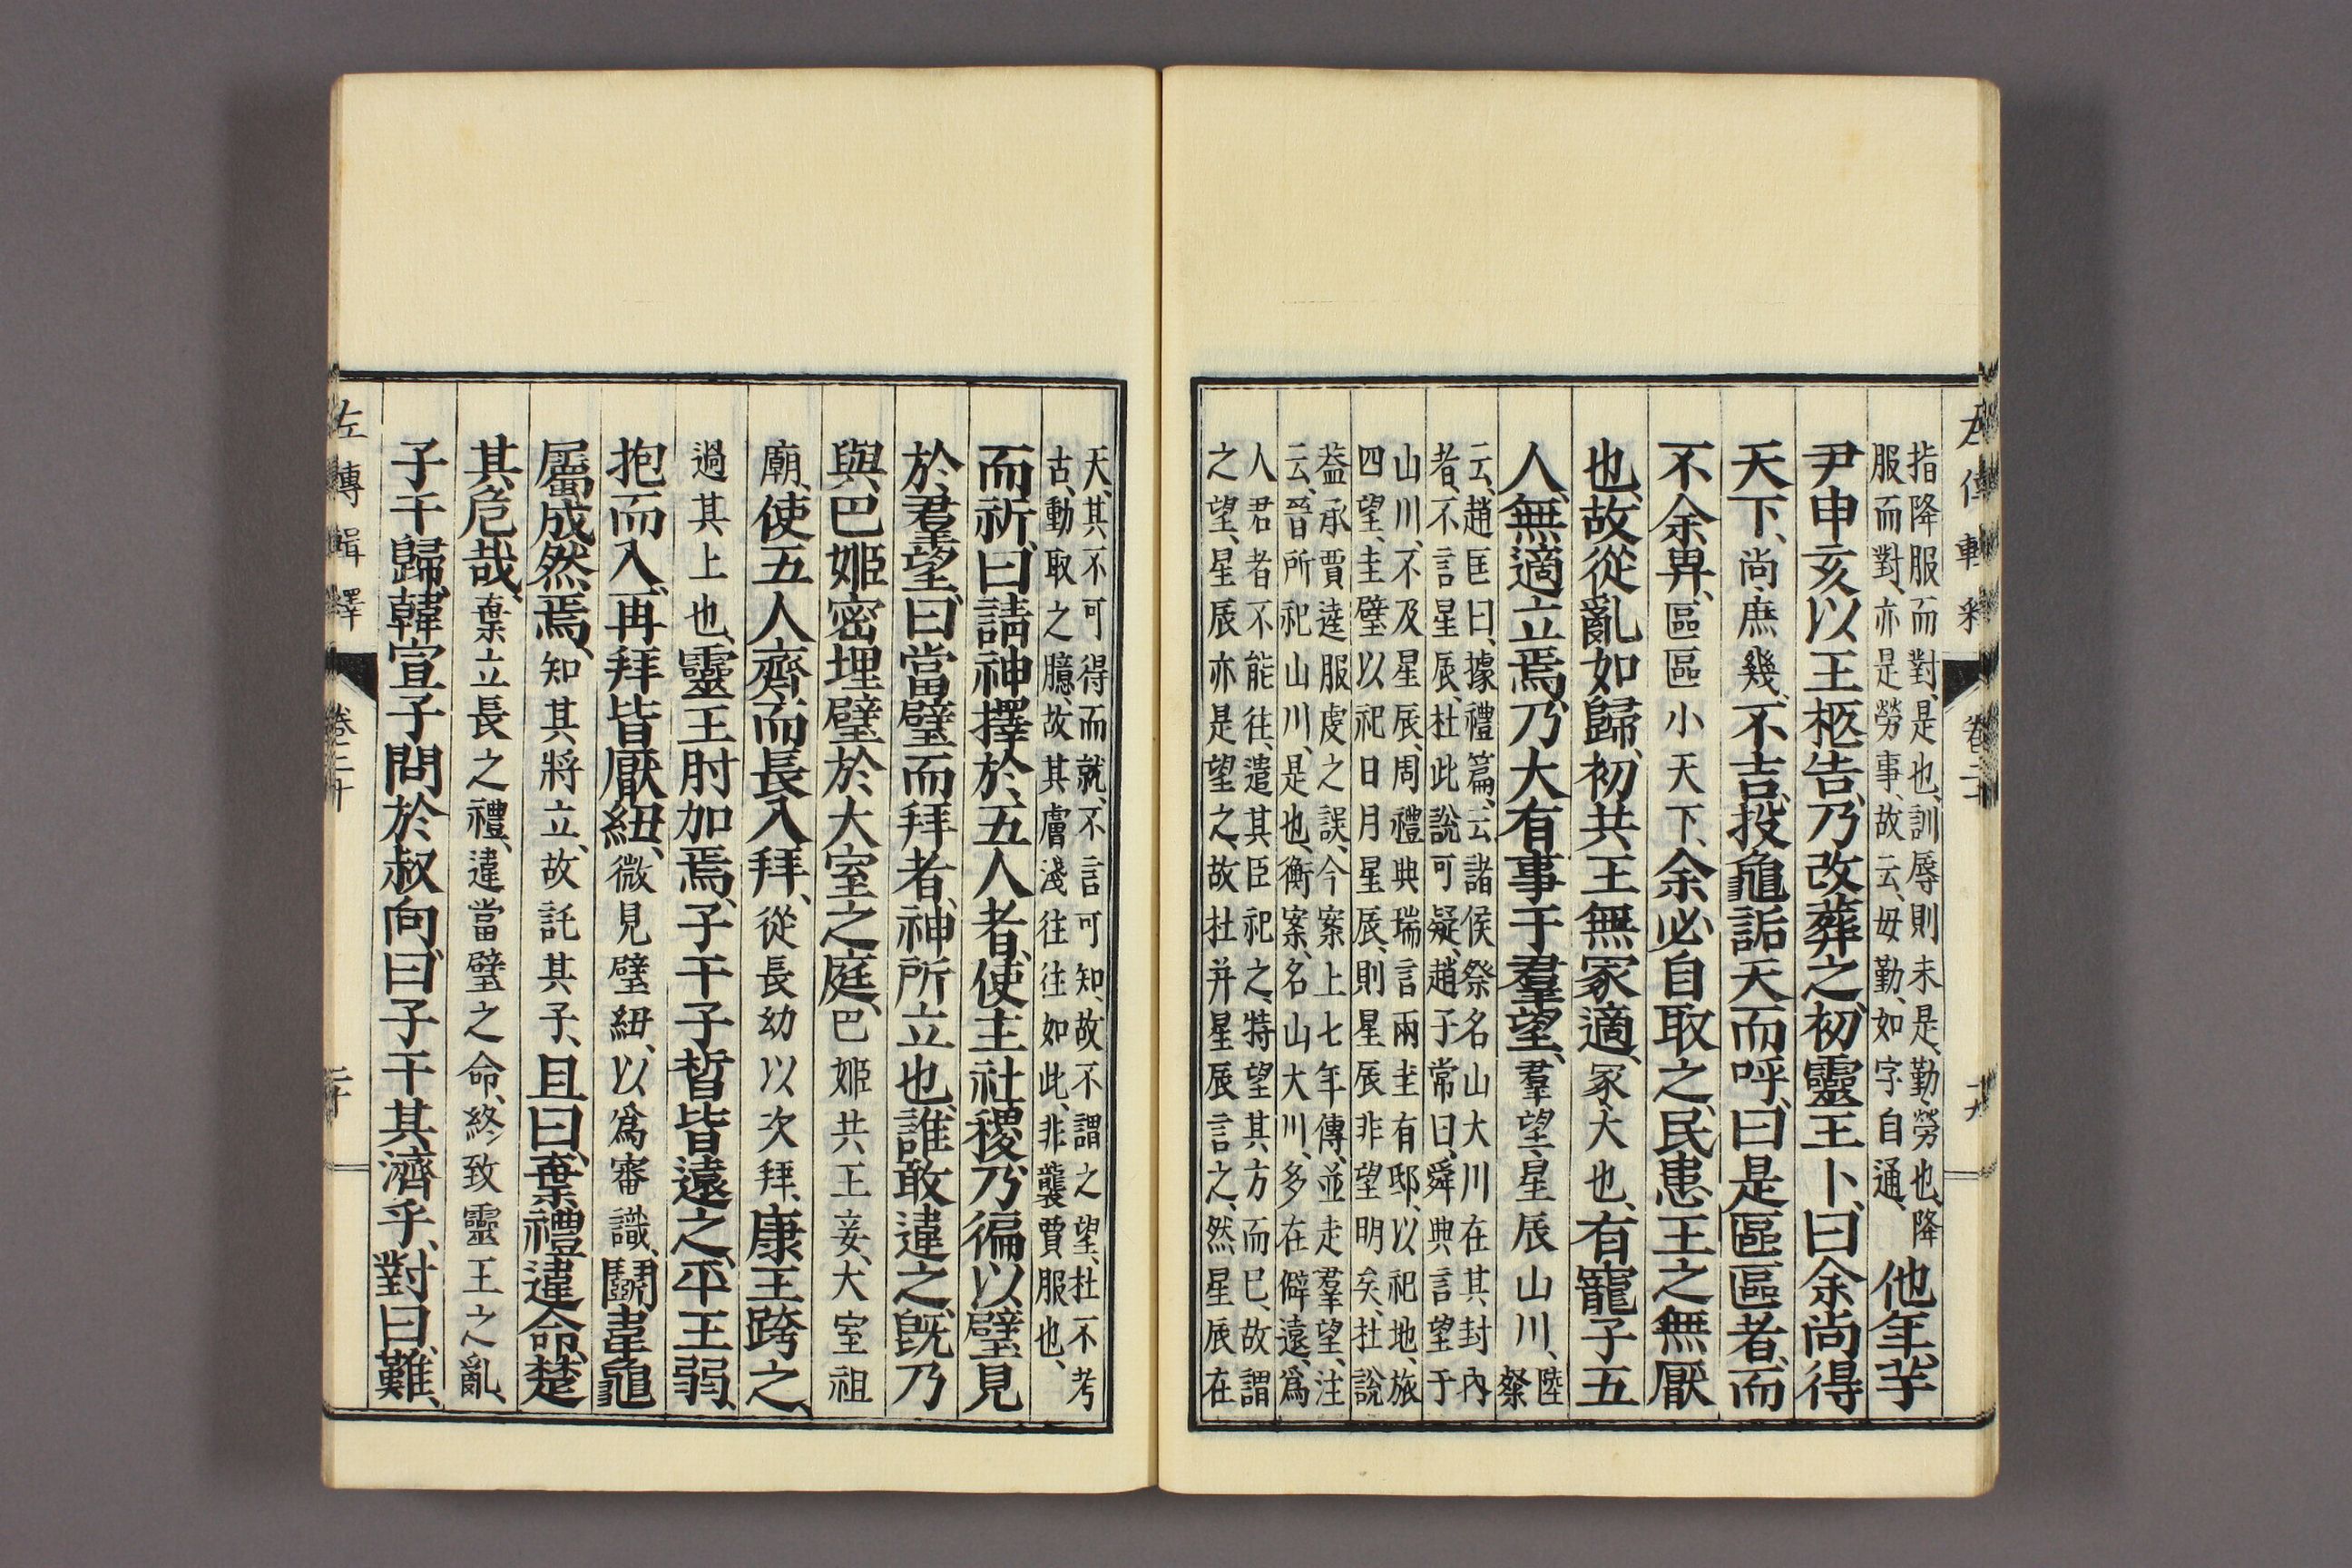 指降服而對、是也、訓辱則未是、勤、勞也、降
服而對、亦是勞事、故云、毋勤、如字自通、
他年、芋
尹申亥以王柩告、乃改葬之、初、靈王卜、曰、余尚得
天下、尚、庶幾、不吉、投龜詬天而呼、曰、是區區者、而
不余畀、區區小天下、余必自取之、民患王之無厭
也、故從亂如歸、初、共王無冢適、冢、大也、有寵子五
人、無適立焉、乃大有事于羣望、羣望、星辰山川、陸
粲
云、趙匡曰、據禮篇、云諸侯祭名山大川在其封內
者、不言星辰、杜此說可疑、趙子常曰、舜典言望于
山川、不及星辰、周禮典瑞言兩圭有邸、以祀地、旅
四望、圭璧以祀日月星辰、則星辰非望明矣、杜說
葢承賈逵服虔之誤、今案上七年傳、並走羣望、注
云、晉所祀山川、是也、衡案、名山大川、多在僻遠、爲
人君者不能往、遣其臣祀之、特望其方而已、故謂
之望、星辰亦是望之、故杜并星辰言之、然星辰在
左傳輯釋
卷二十
十九
天、其不可得而就、不言可知、故不謂之望、杜不考
古、動取之臆、故其膚淺往往如此、非襲賈服也、
而祈、曰、請神擇於五人者、使主社稷、乃徧以璧見
於羣望、曰、當璧而拜者、神所立也、誰敢違之、旣乃
與巴姬密埋璧於大室之庭、巴姬共王妾、大室祖
廟、使五人齊、而長入拜、從長幼以次拜、康王跨之、
過其上也、靈王肘加焉、子干子晳皆遠之、平王弱、
抱而入、再拜皆厭紐、微見璧紐、以爲審識、鬭韋龜
屬成然焉、知其將立、故託其子、且曰、棄禮違命、楚
其危哉、棄立長之禮、違當璧之命、終致靈王之亂、
子干歸、韓宣子問於叔向、曰、子干其濟乎、對曰、難、
左傳輯釋
卷二十
二十